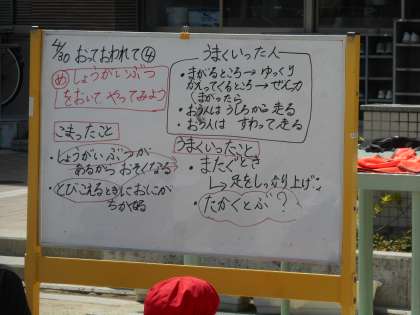 4/30 おっておわれて④
め しょうがいぶつ
をおいて やってみよう
うまくいった人
・まがるところ→ゆっくり
かえってくるところ→ぜん力
(まがったら
・おう人は うしろから 走る
・おう人は すわって走る
こまったこと
・しょうがいぶつが
あるから おそくなる
・とびこえるときに おにが
ちかづく
うまくいったこと
・またぐとき
→足をしっかり上げる
・たかくとぶ?